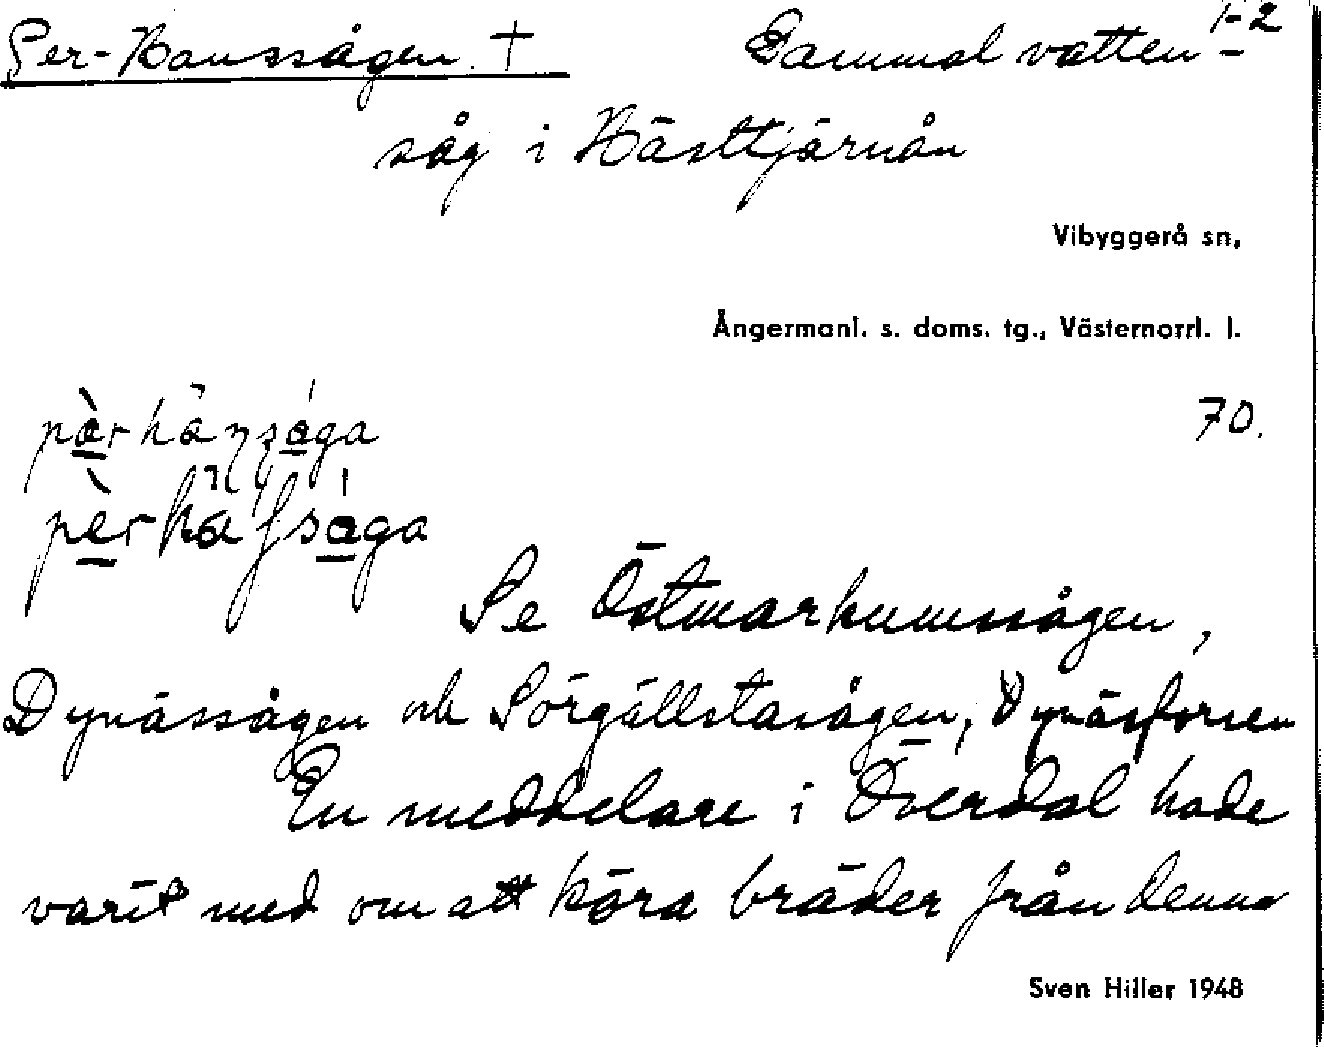 Per-Hanssågen † Gammal vatten- 1-2
såg i Hästtjärnån
Vibyggerå sn,
Ångermanl. s. doms. tg., Västernorrl. l.
70.
Se Östmarkumssågen,
Dynässågen och Sörgällstasågen, Dynäsforsen
En meddelare i Överdal hade
varit med om att köra bräder från denna
Sven Hiller 1948